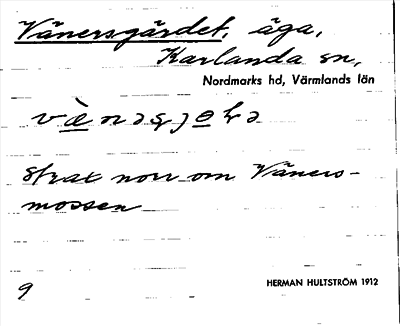 Vänersgärdet, äga,
Karlanda sn,
Nordmarks hd, Värmlands län
Strax norr om Väners-
mossen
9
HERMAN HULTSTRÖM 1912